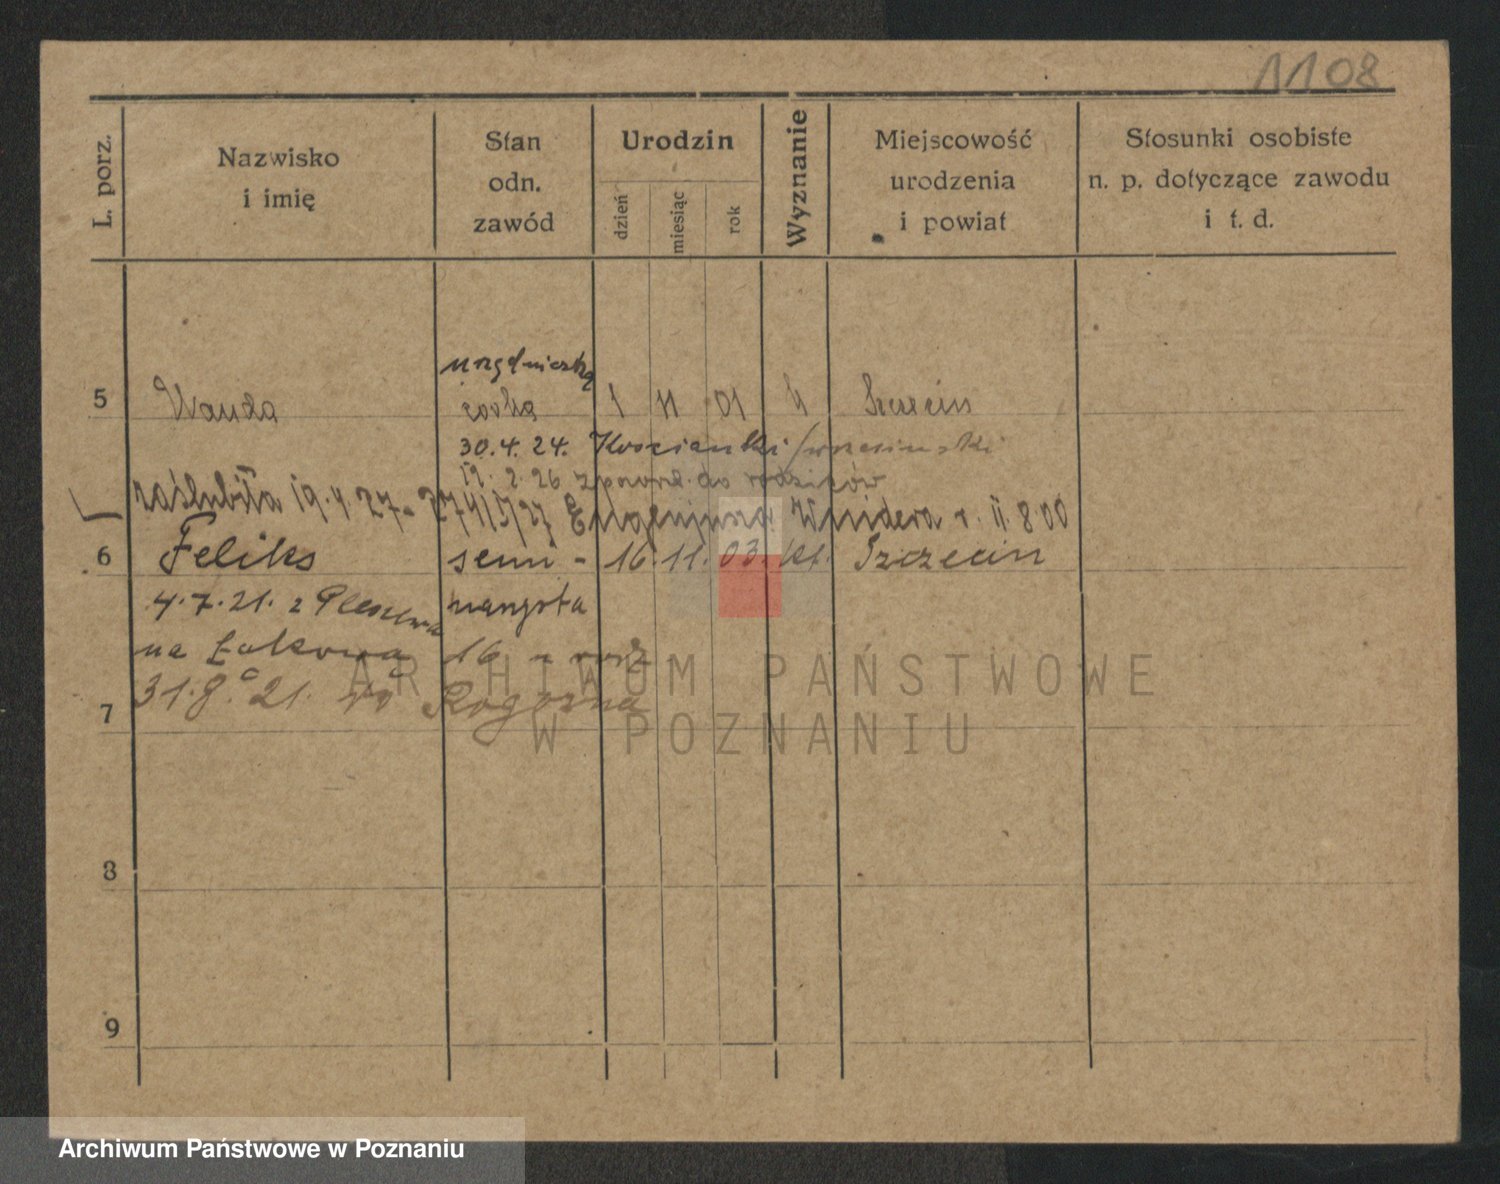 1108
L. porz.
Nazwisko
i imię
Stan
odn.
zawód
Urodzin
dzień
miesiąc
rok
Wyznanie
Miejscowość
urodzenia
i powiat
Stosunki osobiste
n. p. dotyczące zawodu
i t. d.
urzędniczka
5 Wanda córka 1 11 01 k Szczecin
30.4.24. Kosciański
19. 2. 26 z powr. do rodziców
zaślubiła 19.4.27 Widera r. 11.8.00
6 Feliks semi- 16.11.03. kt. Szczecin
4.7.21. z Pleszewa narzysta
na Łąkową 16
31.8.21. do Rogozna
7
8
9
ARCHIWUM PAŃSTWOWE
W POZNANIU
Archiwum Państwowe w Poznaniu